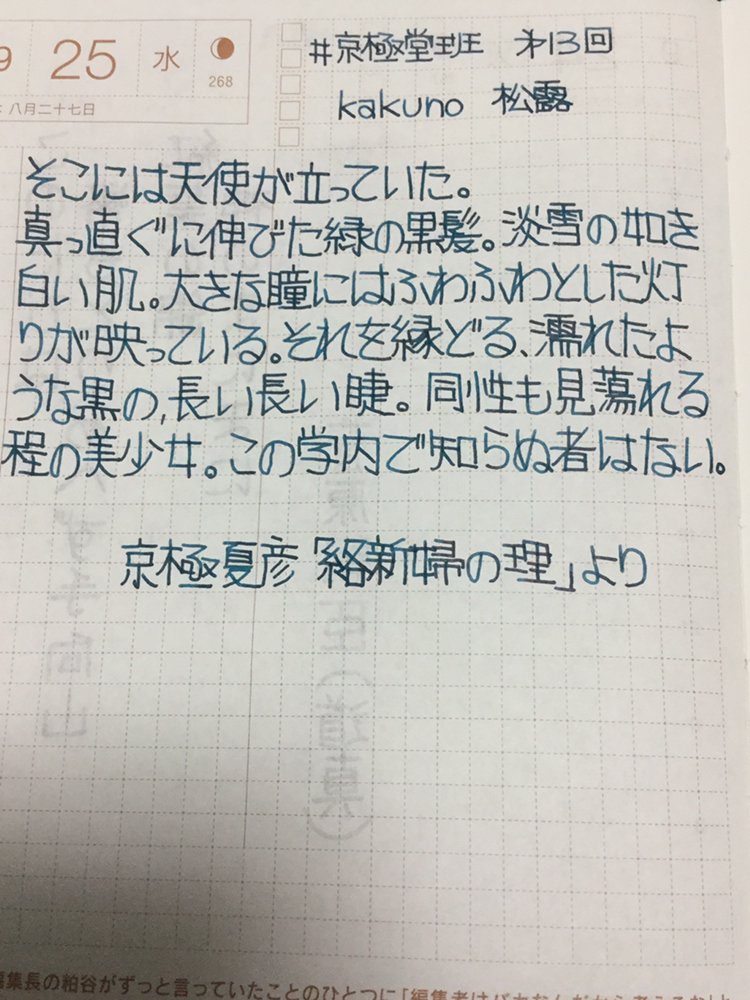 9 25 水
268
八月二十七日
#京極堂班 第13回
kakuno 松露
そこには天使が立っていた。
真っ直ぐに伸びた緑の黒髪。淡雪の如き
白い肌。大きな瞳にはふわふわとした灯
りが映っている。それを縁どる、濡れたよ
うな黒の、長い長い睫。同性も見蕩れる
程の美少女。この学内で知らぬ者はない。
京極夏彦「絡新婦の理」より
編集長の粕谷がずっと言っていたことのひとつに「編集者は